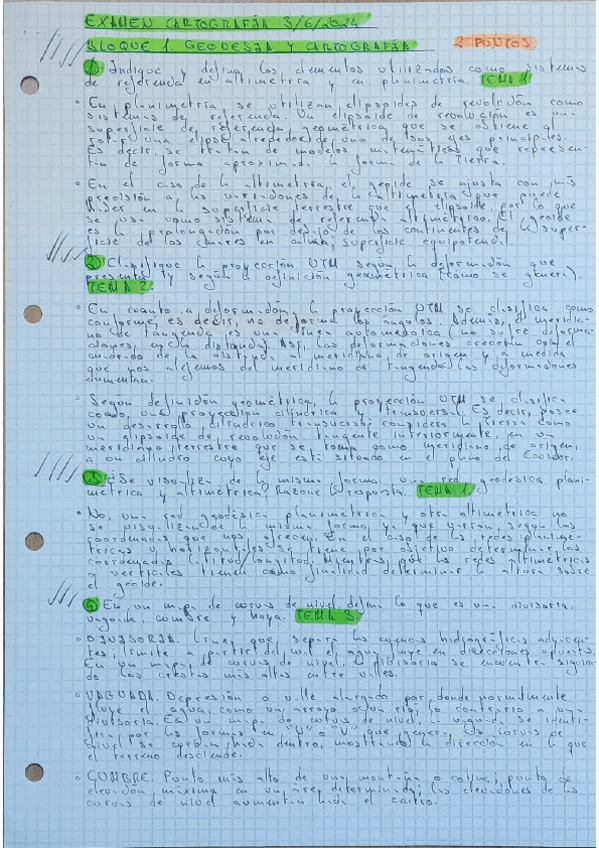 EXAMEN CARTOGRAFÍA 3/6/2024
BLOQUE 1. GEODESIA Y CARTOGRAFÍA 2 PUNTOS
1) Indique y defina los elementos utilizados como sistemas
de referencia en altimetría y en planimetría. TEMA 1.
• En planimetría se utilizan elipsoides de revolución como
sistemas de referencia. Un elipsoide de revolución es una
superficie de referencia geométrica que se obtiene al
rotar una elipse alrededor de uno de sus ejes principales.
Es decir, se tratan de modelos matemáticos que represen-
tan de forma aproximada la forma de la Tierra.
• En el caso de la altimetría, el geoide se ajusta con más
precisión a las variaciones de la altimetría que puede
haber en la superficie terrestre que el elipsoide, por lo que
se usa como sistema de referencia altimétrico. El geoide
es la prolongación por debajo de los continentes de la super-
ficie de los mares en calma, superficie equipotencial.
2) Clasifique la proyección UTM según la deformación que
presenta y según la definición geométrica (cómo se genera).
TEMA 2.
• En cuanto a deformación, la proyección UTM se clasifica como
conforme, es decir, no deforma los ángulos. Además, el meridia-
no de tangencia es una línea automecoica (no sufre deforma-
ciones, en la distancia). Así, las deformaciones crecen con el
cuadrado de la distancia al meridiano de origen y a medida
que nos alejamos del meridiano de tangencia las deformaciones
aumentan.
• Según definición geométrica, la proyección UTM se clasifica
como una proyección cilíndrica y transversal. Es decir, posee
un desarrollo cilíndrico transversal considera la Tierra como
un elipsoide de revolución tangente interiormente, en un
meridiano terrestre que se toma como meridiano de origen,
a un cilindro cuyo eje está situado en el plano del Ecuador.
3) ¿Se visualiza de la misma forma una red geodésica plani-
métrica y altimétrica? Razone la respuesta. TEMA 1.
• No, una red geodésica planimétrica y otra altimétrica no
se visualizan de la misma forma ya que varían según las
coordenadas que nos ofrecen. En el caso de las redes planimé-
tricas u horizontales se tiene por objetivo determinar las
coordenadas latitud/longitud. Mientras que las redes altimétricas
o verticales tienen como finalidad determinar la altura sobre
el geoide.
4) En un mapa de curvas de nivel defina lo que es una divisoria,
vaguada, cumbre y hoya. TEMA 3.
• DIVISORIA. Línea que separa las cuencas hidrográficas adyacen-
tes; límite a partir del cual el agua fluye en direcciones opuestas.
En un mapa de curvas de nivel, la divisoria se encuentra siguien-
do las crestas más altas entre valles.
• VAGUADA. Depresión o valle alargado por donde normalmente
fluye el agua, como un arroyo o un río; lo contrario a una
divisoria. En un mapa de curvas de nivel, la vaguada se identi-
fica por las formas en "U" o "V" que generan las curvas de
nivel se curvan hacia dentro, mostrando la dirección en la que
el terreno desciende.
• CUMBRE. Punto más alto de una montaña o colina; punto de
elevación máxima en un área determinada; las elevaciones de las
curvas de nivel aumentan hacia el centro.